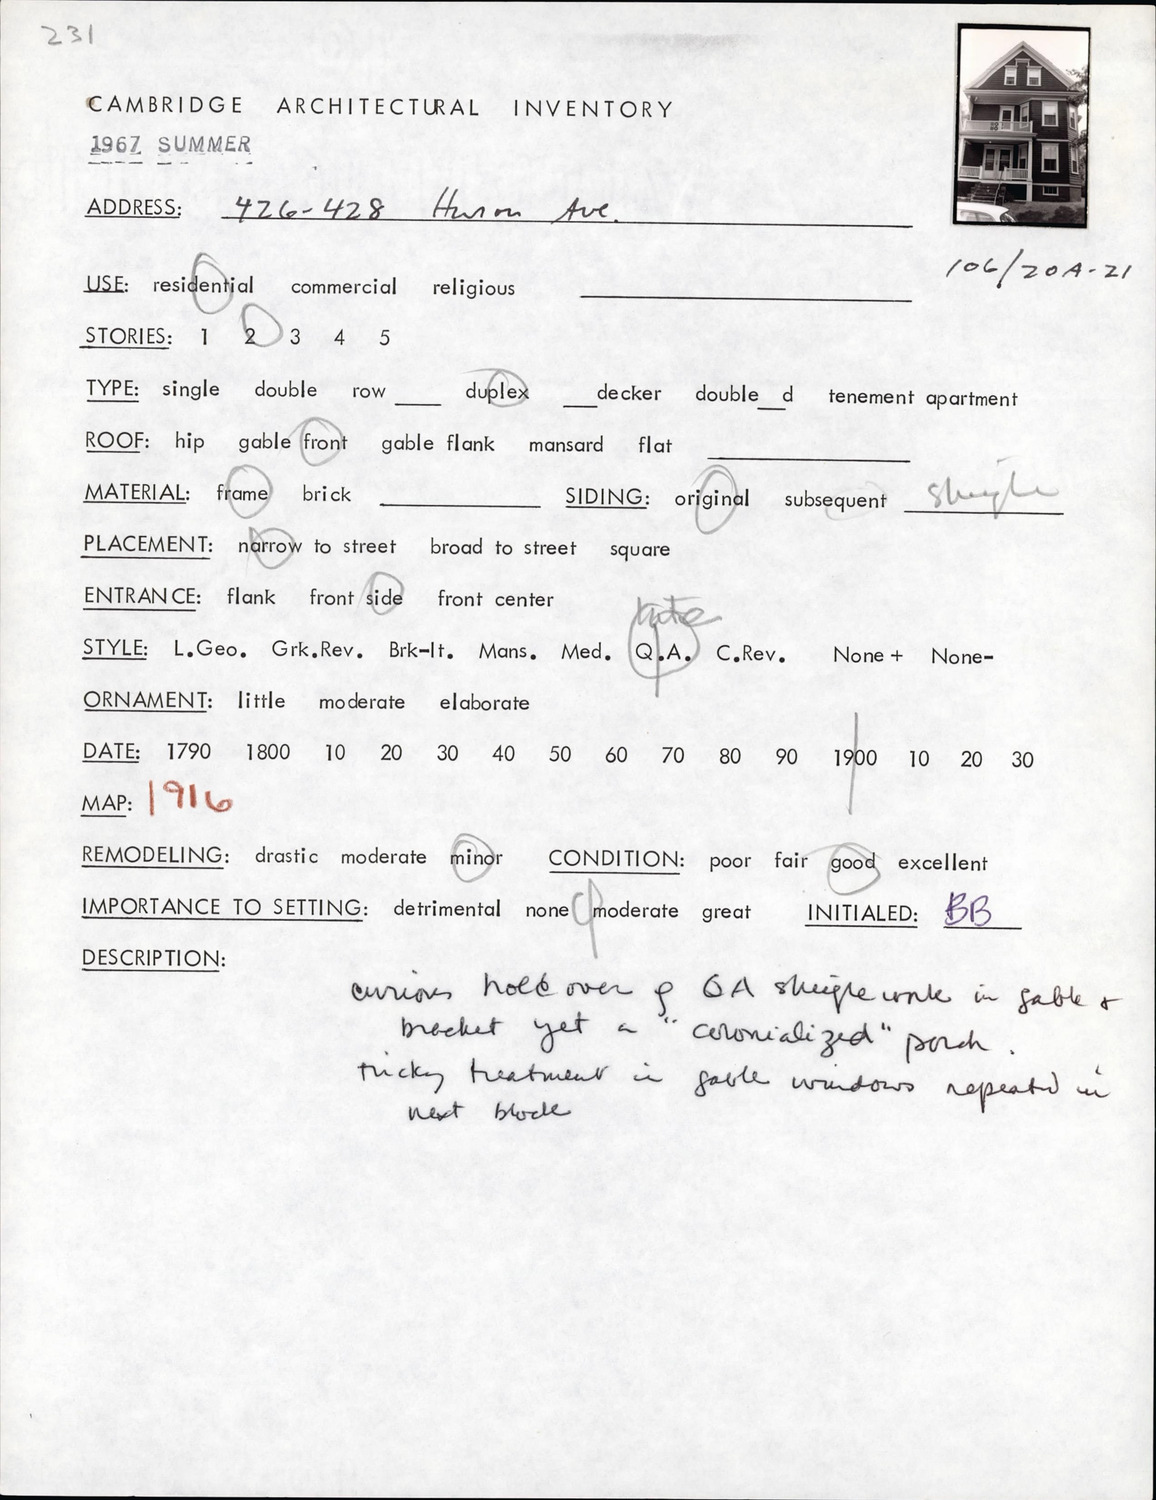 231
CAMBRIDGE ARCHITECTURAL INVENTORY
1967 SUMMER
ADDRESS: 426-428 Huron Ave.
106/20A-21
USE: residential commercial religious
STORIES: 1 2 3 4 5
TYPE: single double row ___ duplex ___decker double__d tenement apartment
ROOF: hip gable front gable flank mansard flat
MATERIAL: frame brick SIDING: original subsequent shingle
PLACEMENT: narrow to street broad to street square
ENTRANCE: flank front side front center
late
STYLE: L.Geo. Grk.Rev. Brk-It. Mans. Med. Q.A. C.Rev. None+ None-
ORNAMENT: little moderate elaborate
DATE: 1790 1800 10 20 30 40 50 60 70 80 90 1900 10 20 30
MAP: 1916
REMODELING: drastic moderate minor CONDITION: poor fair good excellent
IMPORTANCE TO SETTING: detrimental none moderate great INITIALED: BB
DESCRIPTION:
curious holdover of QA shingle work in gable &
bracket yet a "colonialized" porch.
tricky treatment in gable windows repeated in
next block